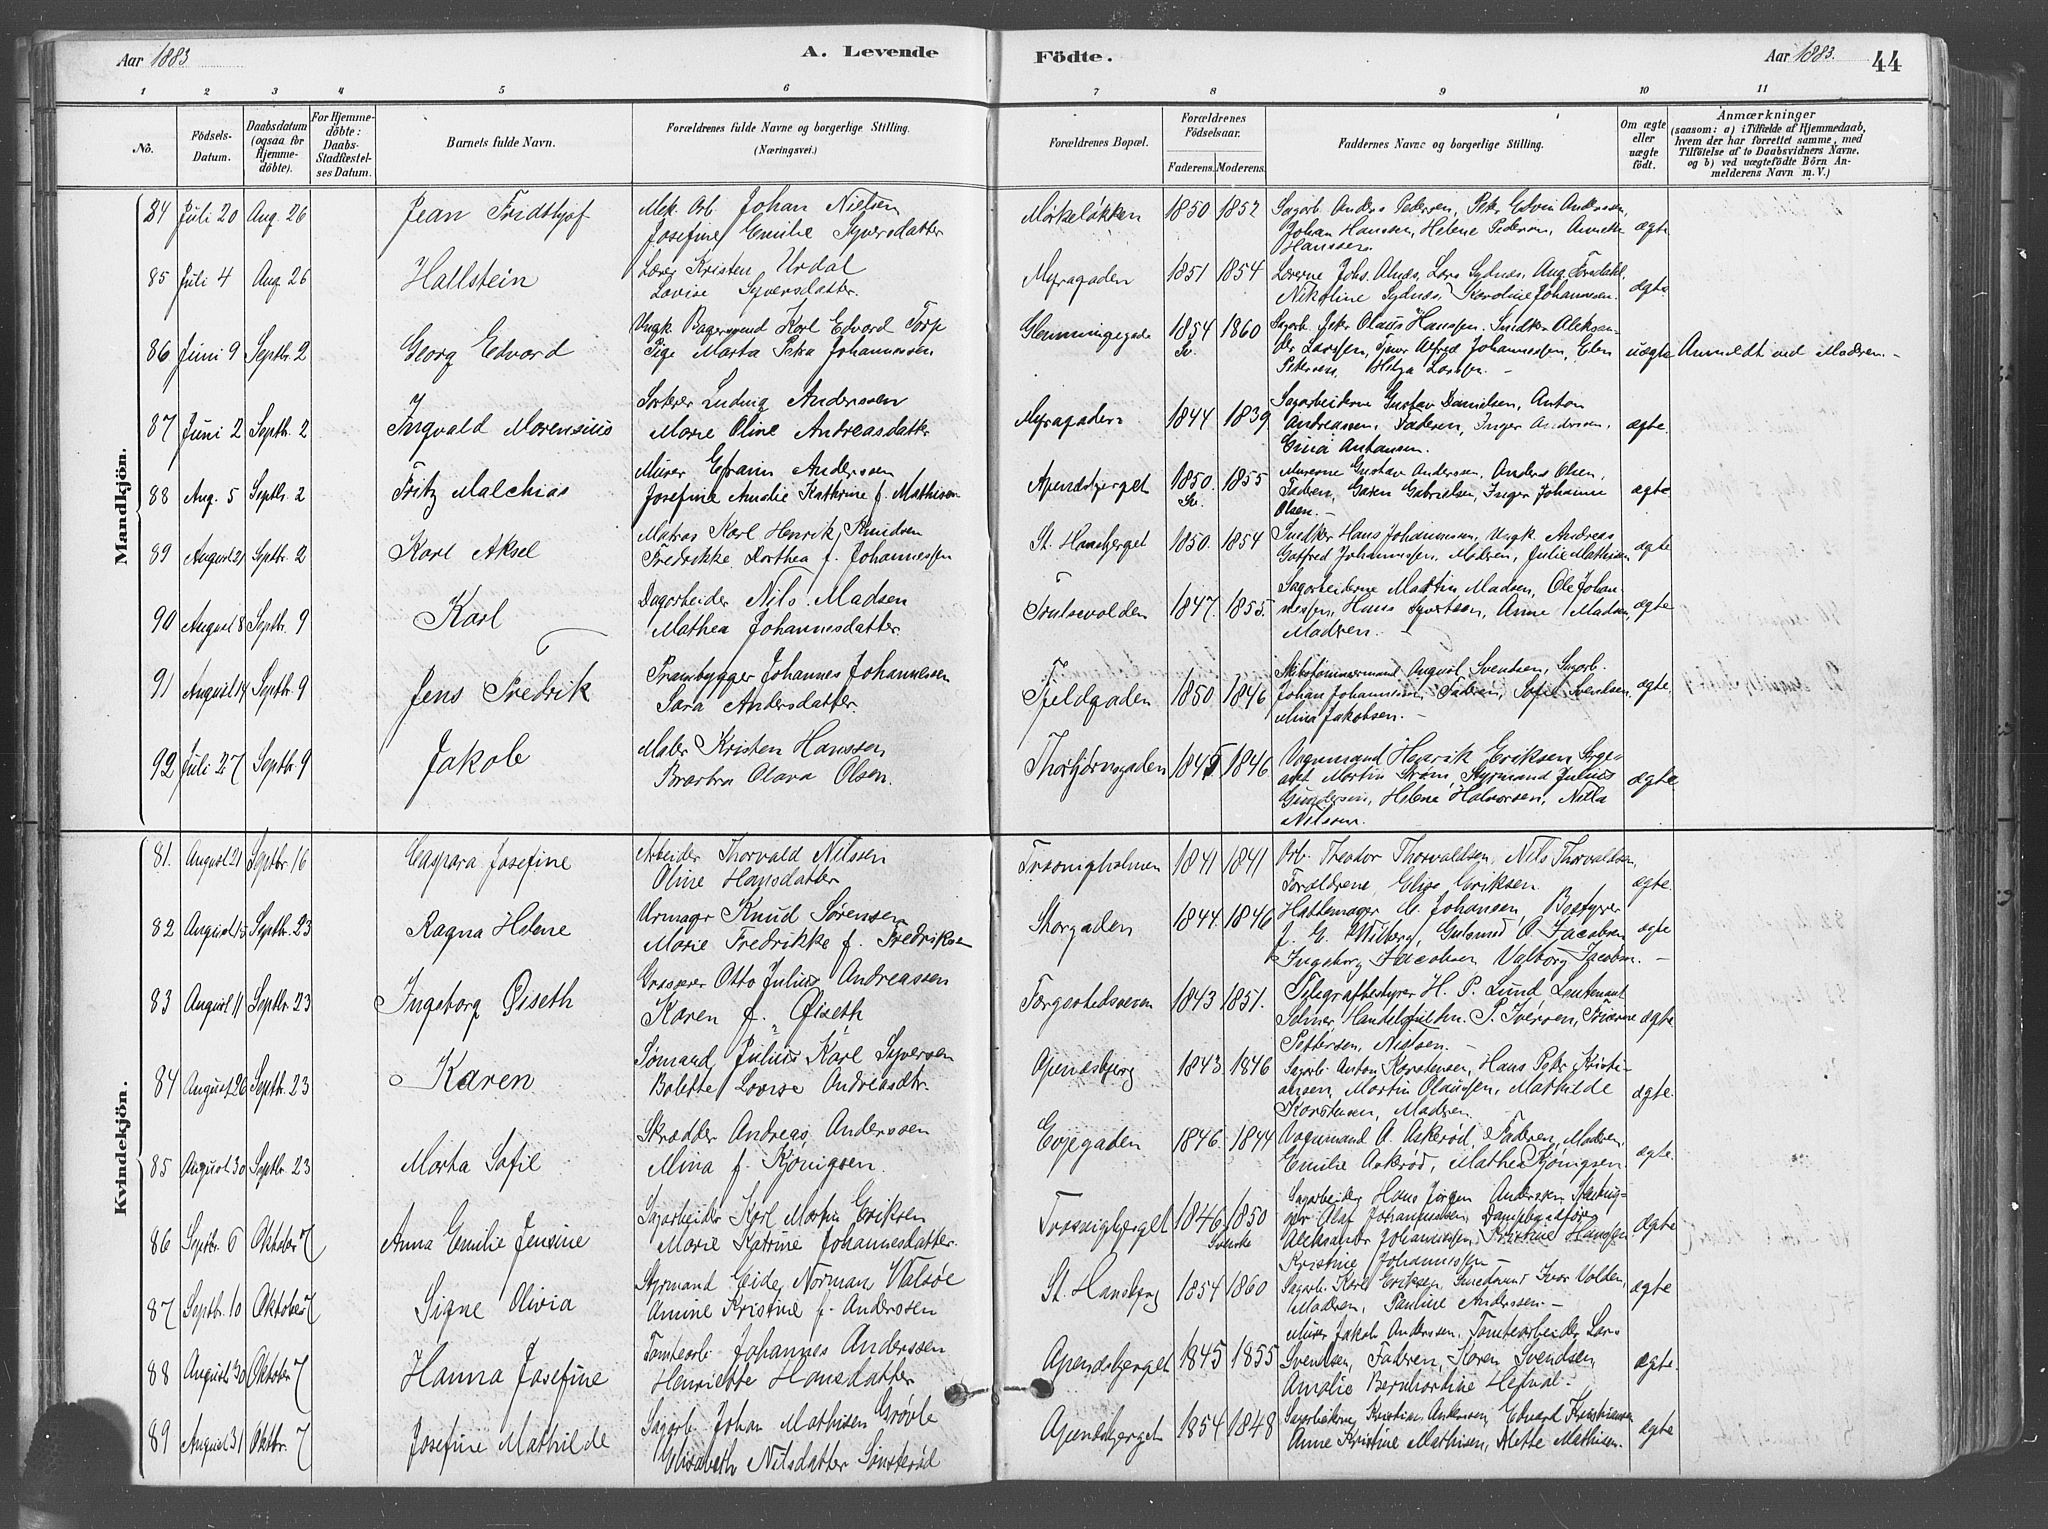 Aar 1883
A. Levende
Födte.
Aar 1883.
44
1 2 3 4 5 6 7 8 9 10 11
No.
Födsels-Datum.
Daabsdatum (ogsaa for Hjemmedöbte).
For Hjemmedöbte: Daabs-Stadfæstelses Datum.
Barnets fulde Navn.
Forældrenes fulde Navne og borgerlige Stilling.
(Næringsvei.)
Forældrenes Bopæl.
Forældrenes Födselsaar.
Faderens. Moderens.
Faddernes Navne og borgerlige Stilling.
Om ægte eller uægte födt.
Anmærkninger
(saasom: a) i Tilfælde af Hjemmedaab, hvem der har forrettet samme, med Tilföielse af to Daabsvidners Navne, og b) ved uægtefödte Börn Anmelderens Navn m. V.)
Mandkjön.
84 Juli 20 Aug. 26 Jean Fridthjof Mek. Arb. Johan Nielsen
Josefine Emilie Syversdatter
Mørkeløkken 1850 1852 Sagarb. Anders Pedersen, Peter Edvin Anderssen,
Johan Hanssen, Helene Pedersen, Annette
Hanssen. ægte
85 Juli 4 Aug. 26 Hallstein Lærer Kristen Urdal
Lovise Syversdatter.
Myragaden 1851 1854 Lærerne Johs. Alnæs, Lars Sydnæs, Aug. Torsdahl
Nikoline Sydnæs, Karoline Johannesen. ægte
86 Juni 9 Septbr. 2 Georg Edvard Ungk. Bagersvend Karl Edvard Torp
Pige Marta Petra Johannessen
Glemmingegade 1854 Sv. 1860 Sagarb. Peter Olaus Hanssen. Snidker Aleksan-
der Larssen, Alfred Johannessen, Elen
Petersen, Helga Larssen. - uægte Anmeldt ved Moderen. -
87 Juni 2 Septbr. 2 Ingvald Morensius Sorterer Ludvig Anderssen
Marie Oline Andreasdatter
Myragaden 1844 1839 Sagarbeiderne Gustav Danielsen, Anton
Andreassen, Faderen, Inger Andersen,
Gina Antonsen. ægte.
88 Aug. 5 Septbr. 2 Fritz Malchias Murer Efraim Anderssen
Josefine Amalie Kathrine f. Mathisen
Apenæsberget 1850. Sv. 1855 Murerne Gustav Anderssen, Anders Olsen,
Faderen, Karen Gabrielsen, Inger Johanne
Olsen. - ægte
89 August 21 Septbr. 2 Karl Aksel Matros Karl Henrik Knudsen
Fredrikke Dorthea f. Johannessen
St. Hansberget 1850. 1854 Snidker Hans Johannessen, Ungk. Andreas
Gotfred Johannessen, Moderen, Julie Mathisen ægte
90 August 8 Septbr. 9 Karl Dagarbeider Nils Madsen
Mathea Johannesdatter.
1847. 1855. Sagarbeiderne Martin Madsen, Ole Johan-
nessen, Hans Syvertsen, Anne Madsen,
Moderen. - ægte
91 August 14 Septbr. 9 Jens Fredrik Prambygger Johannes Johannessen
Sara Andersdatter.
Fjeldgaden 1850 1846 Skibstømmermand August Svendsen, Sagarb.
Johan Johannessen, Faderen, Sofie Svendsen,
Mina Jakobsen. - ægte.
92 Juli 27 Septbr. 9 Jakob Maler Kristen Hanssen
Barbra Olava Olsen.
Thorbjørnsgaden 1845 1846 Vognmand Henrik Eriksen
Martin Strøm, Styrmand Julius
Gundersen, Helene Halvorsen,
Nilssen. ægte
Kvindekjön.
81. August 21 Septbr 16 Caspara Josefine Arbeider Thorvald Nilssen
Oline Hansdatter
Trosvigholmen 1841 1841 Arb. Theodor Thorvaldsen, Nils Thorvaldsen,
Forældrene, Elise Eriksen. ægte
82 August 15 Septbr. 23 Ragna Helene Urmagr Knud Sørensen
Marie Fredrikke f. Fredriksen
Storgaden 1844. 1846 Hattemager C. Johansen, Bestyrer
Guldsmed O. Jacobsen
Ingeborg Jacobsen Valborg Jacobsen. - ægte
83 August 11 Septbr. 23 Ingeborg Øiseth Grosserer Otto Julius Andreassen
Karen f. Øiseth
Færgestedsveien 1843 1851. Telegrafbestyrer H. P. Lund Leutenant
Selmer, P. Iversen, Fruerne
Pettersen, Nielsen. - ægte
84 August 26 Septbr. 23 Karen Sømand Julius Karl Syversen
Bolette Lovise Andreasdtr.
Apenæsberg 1843 1846 Sagarb. Anton Korstensen, Hans Peter Kristi-
ansen, Martin Olaussen, Mathilde
Korstensen, Moderen. ægte.
85 August 30 Septbr. 23 Marta Sofie Skrædder Andreas Anderssen
Mina f. Kjønigsen.
Evjegaden 1846. 1844 Vognmand A. Askerød, Faderen, Moderen,
Emilie Askerød, Mathea Kjønigsen ægte.
86 Septbr. 6 Oktober 7 Anna Emilie Jensine Sagarbeider Karl Martin Eriksen
Marie Katrine Johannesdatter.
Trosvigberget 1846 1850 Svenske Sagarbeider Hans Jørgen Anderssen,
Olaf Johannessen,
Aleksander Johannessen, Kristine Hanssen
Kristine Johannessen - ægte
87 Septbr. 10 Oktober 7 Signe Olivia Styrmand Eide Norman Valsøe
Amine Kristine f. Anderssen
St. Hansberg 1854 1860 Sagarb. Karl Eriksen, Smedsvend Ivar Volden,
Moderen, Pauline Anderssen. - ægte
88 August 30 Oktober 7 Hanna Josefine Tomtearb. Johannes Anderssen
Henriette Hansdatter
Apenæsberget 1845 1855 Murer Jakob Anderssen, Tomtearbeider Lars
Svendsen, Faderen, Karen Svendsen,
Amalie Bernhartine ægte
89 August 31 Oktbr. 7 Josefine Mathilde Sagarb. Johan Mathisen Grøvle
Elisabeth Nilsdatter
Apenæsberget 1854 1848 Sagarbeiderne Kristian Anderssen, Edvard Kristiansen
Anne Kristine Mathisen, Mette Mathisen. ægte